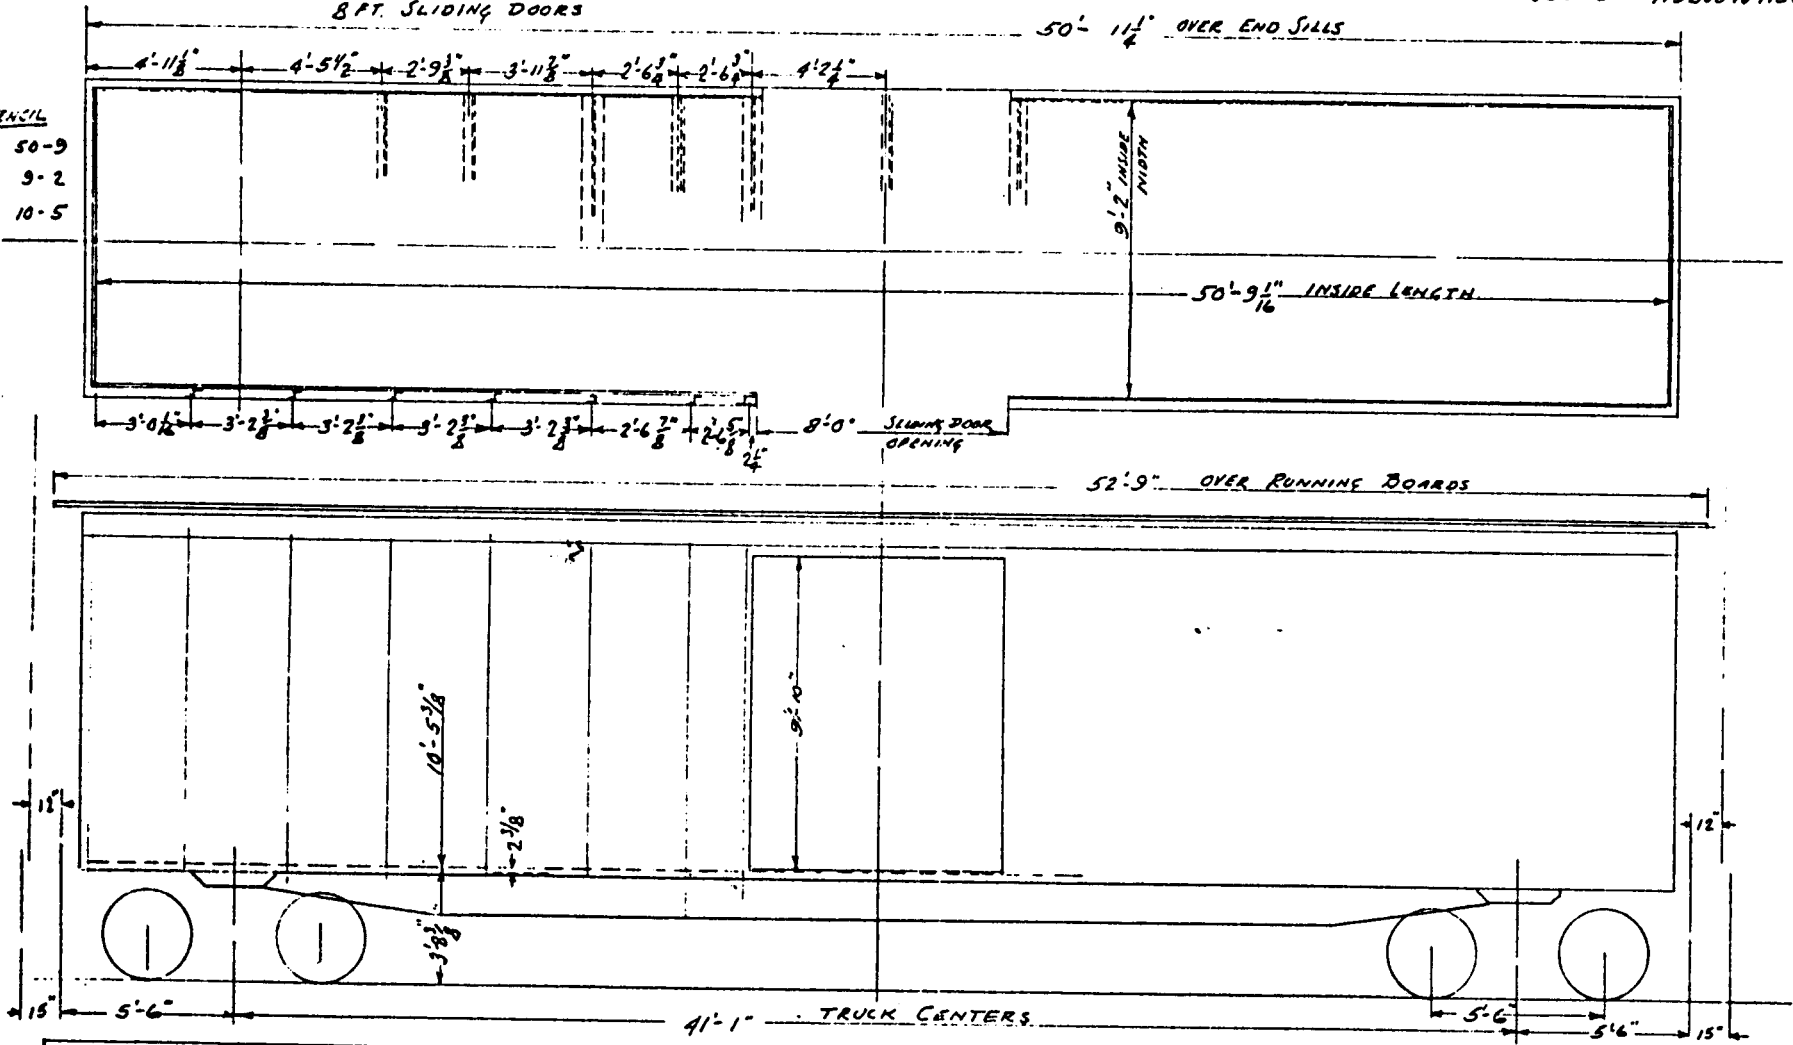 8 FT. SLIDING DOORS
50'- 11 1/4" OVER END SILLS
4'-11 1/8" 4'-5 1/2" 2'-9 3/8" 3'-11 7/8" 2'-6 3/4" 2'-6 3/4" 4'2 1/4"
50-9
9-2
10-5
9'-2" INSIDE WIDTH
50'-9 1/16" INSIDE LENGTH
3'-0 1/16" 3'-2 3/8" 3'-2 3/8" 3'-2 3/8" 3'-2 3/8" 2'-6 7/8" 2'-6 5/8 2 1/4" 8'-0" SLIDING DOOR
OPENING
52'-9" OVER RUNNING BOARDS
10'-5 3/8"
9'-10"
2 3/8"
12" 12"
3'-8 3/8"
15" 5'-6" 41'-1" TRUCK CENTERS 5'-6" 5'6" 15"